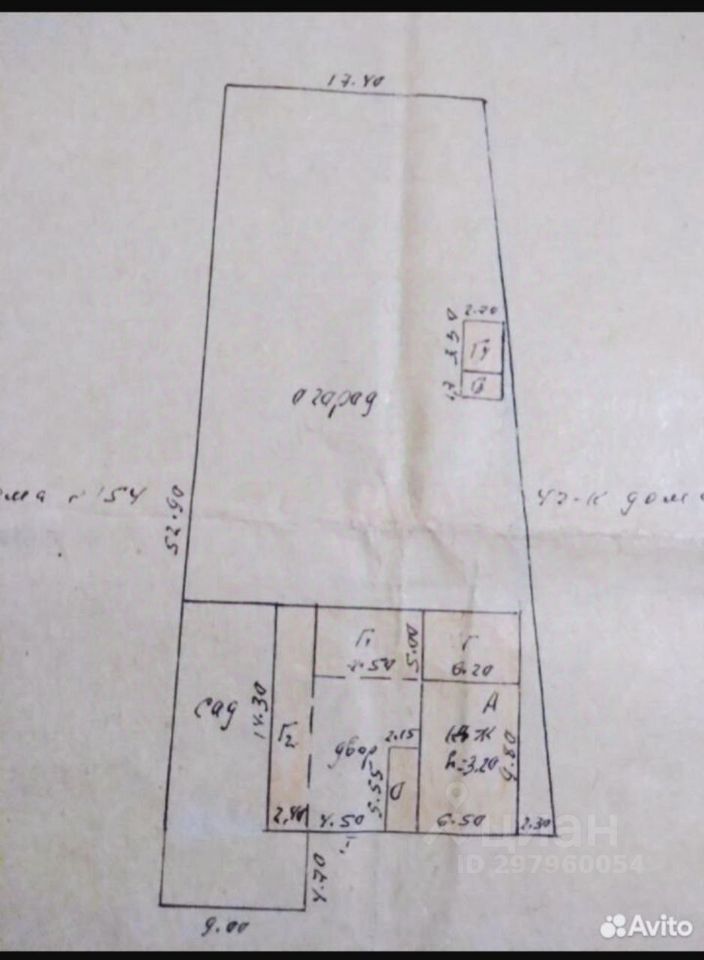 17.40
2.20
3.50
Г4
1,7
огарад
52.90
Г1
7.50
5.00
Г
6.20
сад
14.30
Г2
двор
2.15
5.55
А
Ж
h=3.20
9.80
2,40
4.50
6.50
2.30
4.70
9.00
циан
ID 297960054
Avito